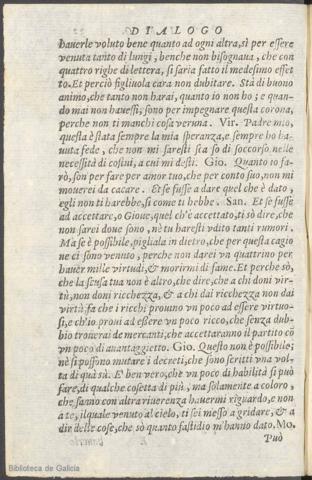 DIALOGO
hauerle voluto bene quanto ad ogni altra, sì per essere
venuta tanto di lungi, benche non bisognaua, che con
quattro righe di lettera, si saria fatto il medesimo effet
to. Et perciò figliuola cara non dubitare. Stà di buono
animo, che tanto non harai, quanto io non ho; e quan-
do mai non hauessi; sono per impegnare questa corona,
perche non ti manchi cosa veruna. Vir. Padre mio,
questa è stata sempre la mia speranza, e sempre ho ha-
uuta fede, che non mi saresti sca so di soccorso nelle
necessità di costui, a cui mi desti. Gio. Quanto io fa-
rò, son per fare per amor tuo, che per conto suo, non mi
mouerei da cacare. Et se fusse a dare quel che è dato,
egli non ti harebbe, si come ti hebbe. San. Et se fusse
ad accettare, o Gioue, quel ch'è accettato, ti sò dire, che
non sarei doue sono, nè tu haresti vdito tanti rumori.
Ma se è possibile, pigliala in dietro, che per questa cagio
ne ci sono venuto, perche non darei vn quattrino per
hauer mille virtudi, & morirmi di fame. Et perche sò,
che la scusa tua non è altro, che dire, che a chi doni vir-
tù, non doni ricchezza, & a chi dai ricchezza non dai
virtù, fa che i ricchi prouino vn poco ad essere virtuo-
si, e ch'io proui ad essere vn poco ricco, che senza dub-
bio trouerai de mercanti, che accettaranno il partito cõ
vn poco di auantaggietto. Gio. Questo non è possibile;
nè si possono mutare i decreti, che sono scritti vna vol-
ta di quà sù. E' ben vero, che vn poco di habilità si può
fare, di qualche cosetta di più, ma solamente a coloro,
che sanno con altra riuerenza hauermi riguardo, e non
a te, il quale venuto al cielo, ti sei messo a gridare, & a
dir delle cose, che sò quanto fastidio m'hanno dato, Mo.
Può
Biblioteca de Galicia